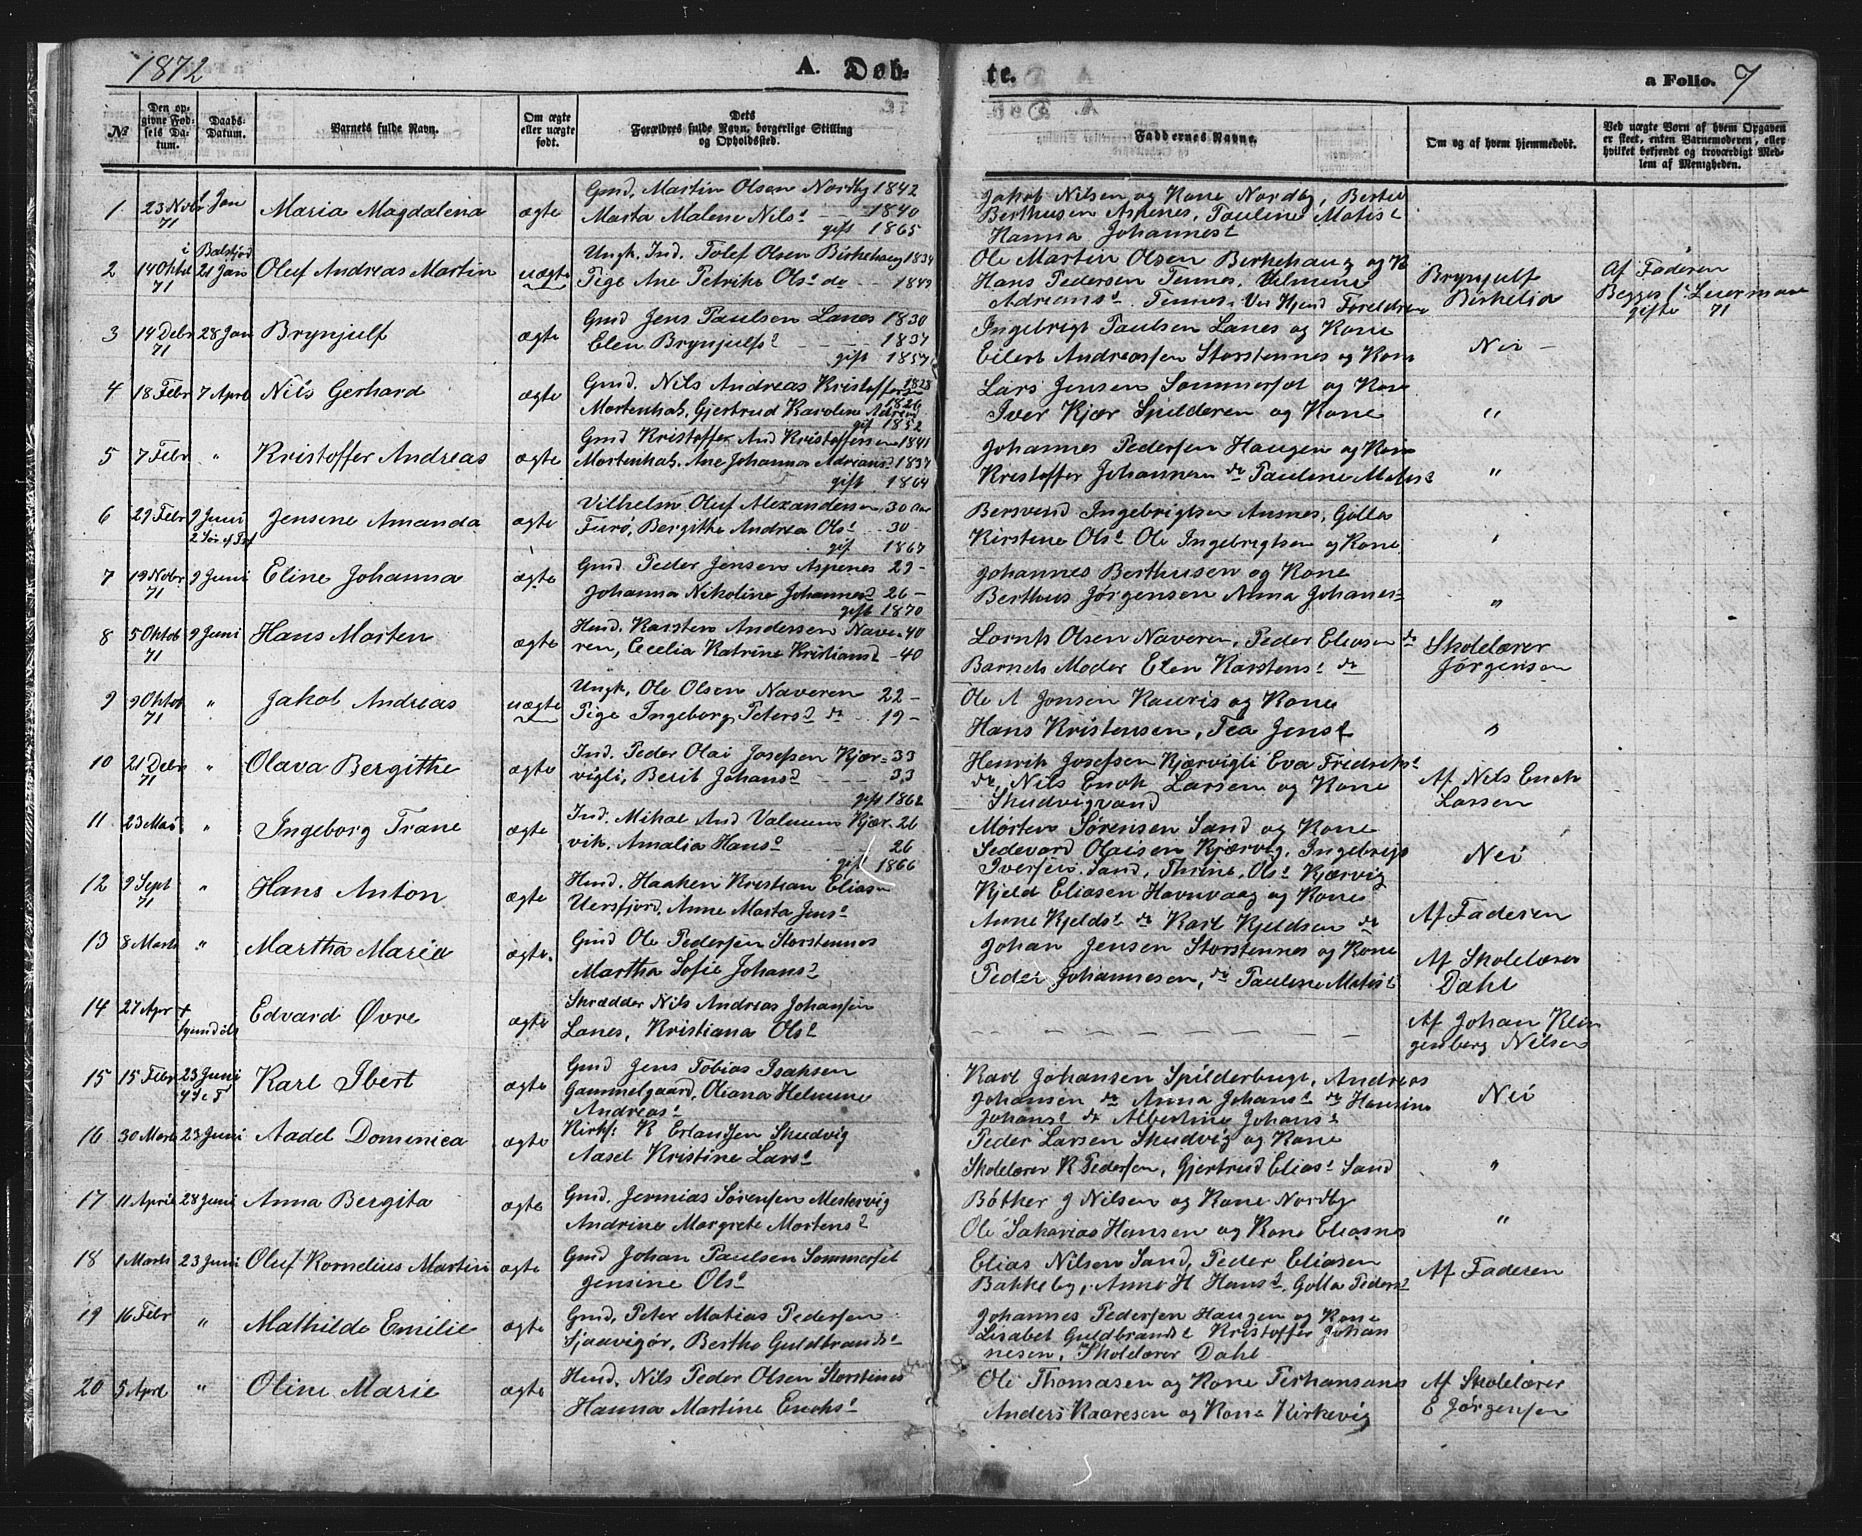 1872
A. Døb-
te.
a Folio. 7
№
Den opgivne Fødsels Datum.
Daabs-Datum.
Barnets fulde Navn.
Om ægte eller uægte født.
Dets Forældres fulde Navn, borgerlige Stilling og Opholdssted.
Faddernes Navne.
Om og af hvem hjemmedøbt.
Ved uægte Børn af hvem Opgaven er skeet, enten Barnemoderen, eller hvilket bekjendt og troværdigt Medlem af Menigheden.
1 23 Novbr 71 1 Jan Maria Magdalena ægte
Gmd. Martin Olsen Nordby 1842
Marta Malene Nilsd 1840
gift 1865
Jakob Nilsen og Kone Nordby, Bertil
Berthusen Aspenes, Pauline Matisd
Hanna Johannesd
2 14 Oktob 71 i Balsfjord 21 Jan Oluf Andreas Martin uægte
Ungk. Ind. Tolef Olsen Birkehaug 1834
Pige Ane Petrike Olsd do 1849
Ole Martin Olsen Birkehaug og K
Hans Pedersen Tennes, Elmine
Adriansd Tennes.
Brynjulf
Birkelia
Af Faderen
Begges 1ste Leiermaal
gifte 71
3 14 Debr 71 28 Jan Brynjulf ægte
Gmd Jens Paulsen Lanes 1830
Elen Brynjulfsd 1837
gift 1857
Ingebrigt Paulsen Lanes og Kone
Eilert Andreassen Storstennes og Kone
Nei
4 18 Febr 7 Aprl Nils Gerhard ægte
Gmd. Nils Andreas Kristoffersen 1828
Mortenhals, Gjertrud Karoline Adrian 1826
gift 1852
Lars Jensen Sommerset og Kone
Iver Kjær Spilderen og Kone
"
5 7 Febr " Kristoffer Andreas ægte
Gmd Kristoffer And Kristoffersen 1841
Mortenhals. Ane Johanna Adriansd 1837
gift 1864
Johannes Pedersen Haugen og Kone
Kristoffer Johannesen do Pauline Matisd
"
6 29 Febr 9 Juni 2 Søn ef Tref Jensine Amanda ægte
Vilhelm Oluf Alexandersen 30 Aar
Turø, Bergithe Andrea Olsd 30
gift 1867
Bersvend Ingebrigtsen Ansnes, Golla
Kirstine Olsd Ole Ingebrigtsen og Kone
"
7 19 Novbr 71 9 Juni Eline Johanna ægte
Gmd. Peder Jensen Aspenes 29
Johanna Nikoline Johannesd 26
gift 1870
Johannes Berthusen og Kone
Berthus Jørgensen Anna Johanes
"
8 5 Oktob 71 9 Juni Hans Morten ægte
Hmd. Karsten Andersen Nave- 40
ren, Cecelia Katrine Kristiansd 40
Lornts Olsen Naveren, Peder Eliasen do
Barnets Moder Elen Karstensd do
Skolelærer
Jørgensen
9 9 Oktob 71 " Jakob Andreas uægte
Ungk, Ole Olsen Naveren 22
Pige Ingeborg Petersd do 19
Ole A Jonsen Kauris og Kone
Hans Kristensen, Tea Jensd
"
10 21 Debr 71 " Olava Bergithe ægte
Ind. Peder Olai Josefsen Kjær- 33
vigli, Berit Johansd 33
gift 1862
Henrik Josefsen Kjærvigli Eva Fridriksd
do, Nils Enok Larsen og Kone
Skudvigvand
Af Nils Enok
Larsen
11 23 Mai " Ingeborg Trane ægte
Ind. Mikal And Kjær- 26
vik. Amalia Hansd 26
gift 1866
Morten Sørensen Sand og Kone
Sedevard Olaisen Kjærvig, Ingebrigt
Iversen Sand, Thrine Olsd Kjærvig
Nei
12 9 Sept 71 " Hans Anton ægte
Hmd. Haaken Kristian Eliasn
Uersfjord, Anne Marta Jensd
Kjeld Eliasen Havnvaag og Kone
Anne Kjeldsd do Karl Kjeldsen do
Af Faderen
13 8 Marts " Martha Maria ægte.
Gmd Ole Pedersen Storstennes
Martha Sofie Johansd
Johan Jensen Storstennes og Kone
Peder Johannesen, do Pauline Matisd
Af Skolelærer
Dahl
14 27 Apr Edvard Øvre ægte
Skrædder Nils Andreas Johansen
Lanes, Kristiana Olsd
Af Johan Klin
genberg Nilsen
15 15 Febr 23 Juni 4 S e T Karl Ibert ægte
Gmd Jens Tobias Isaksen
Gammelgaard, Oliana Helmine
Andreasd
Karl Johansen Spilderbugt, Andreas
Johansen do Anna Johansd do Hansine
Johansd do Albertine Johansd
Nei
16 30 Marts 23 Juni Aadel Dominica ægte
Kirks. K Erlandsen Skudvig
Aasel Kristine Larsd
Peder Larsen Skudvig og Kone
Skolelærer K Pedersen, Gjertrud Eliasd Sand
"
17 11 April 28 Juni Anna Bergita ægte
Gmd. Jermias Sørensen Mestervig
Andrine Margrete Mortensd
Bøtker J Nilsen og Kone Nordby
Ole Sakarias Hansen og Kone Eliasnes
"
18 1 Marts 23 Juni Oluf Kornelius Martin ægte
Gmd Johan Paulsen Sommerset
Jensine Olsd
Elias Nilsen Sand, Peder Eliasen
Bakkeby, Anne H Hansd. Golla Pedersd
Af Faderen
19 16 Febr " Mathilde Emilie ægte
Gmd, Peter Matias Pedersen
Sjaavigør, Bertha Guldbrandsd
Johannes Pedersen Haugen og Kone
Lisabet Guldbrandsd Kristoffer Johan
nesen, Skolelærer Dahl
20 5 Aprl " Oline Marie ægte
Hmd. Nils Peder Olsen Storstenes
Hanna Martine Enoksd
Ole Thomasen og Kone
Anders Kaaresen og Kone Kirkevig
Af Skolelærer
E Jørgensen